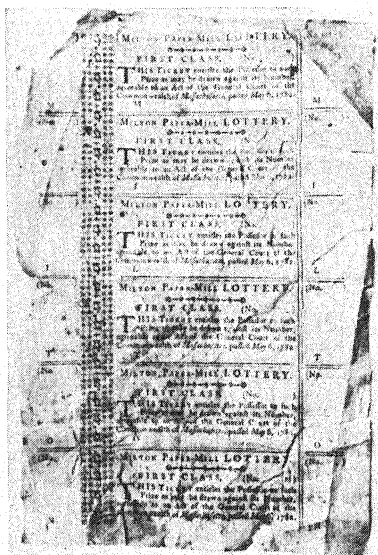 MILTON PAPER-MILL LOTTERY.
FIRST CLASS. (No.
THIS TICKET entitles the Possessor to such
Prize as may be drawn against its Number,
agreeable to an Act of the General Court of the
Commonwealth of Massachusetts, passed May 6, 1782.
M
No.
MILTON PAPER-MILL LOTTERY.
FIRST CLASS, (No.
THIS TICKET entitles the
Prize as may be drawn its Number
agreeable to an Act of the
Commonwealth of 1782.
I
MILTON PAPER-MILL LOTTERY
FIRST CLASS. (No.
THIS TICKET entitles the Possessor to such
Prize as may be drawn against its Number,
agreeable to an Act of the General Court of the
Commonwealth of Massachusetts, passed May 6, 1782
L
I
L
(No.
MILTON PAPER-MILL LOTTERY
(No.
FIRST CLASS. (No.
THIS TICKET entitles the Possessor to such
be drawn its Number,
agreeable to an Act of the General Court of the
of Massachusetts, passed May 6, 1782.
T
T
MILTON PAPER-MILL LOTTERY.
No.
FIRST CLASS (No.
THIS TICKET entitles the Possessor to such
drawn against its Number,
agreeable to an the General Court of the
of Massachusetts, passed May 6, 178
O
O
(No.
MILTON PAPER-MILL LOTTERY
(No.
(FIRST CLASS. (No.
THIS TICKET entitles the Possessor to such
Prize as may be drawn against its Number,
to an Act of the General Court of the
of Massachusetts, passed May 6, 1782.